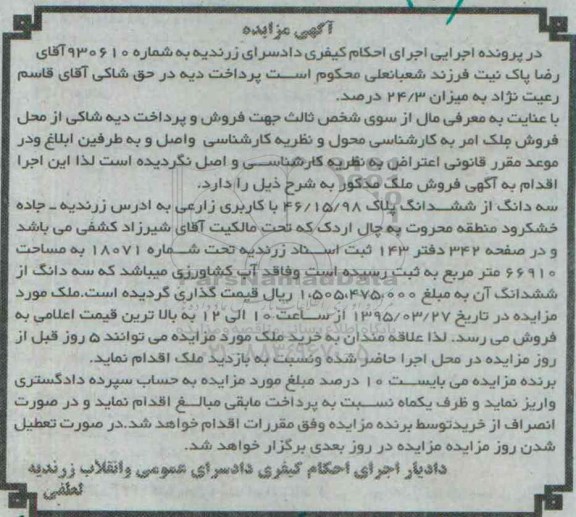 آگهی مزایده
در پرونده اجرایی اجرای احکام کیفری دادسرای زرندیه به شماره ۹۳۰۶۱۰ آقای
رضا پاک نیت فرزند شعبانعلی محکوم است پرداخت دیه در حق شاکی آقای قاسم
رعیت نژاد به میزان ۲۴/۳ درصد.
با عنایت به معرفی مال از سوی شخص ثالث جهت فروش و پرداخت دیه شاکی از محل
فروش ملک امر به کارشناسی محول و نظریه کارشناسی واصل و به طرفین ابلاغ ودر
موعد مقرر قانونی اعتراض به نظریه کارشناسی و اصل نگردیده است لذا این اجرا
اقدام به آگهی فروش ملک مذکور به شرح ذیل را دارد.
سه دانگ از ششدانگ پلاک ۴۶/۱۵/۹۸ با کاربری زارعی به ادرس زرندیه ـ جاده
خشکرود منطقه محروت به چال اردک که تحت مالکیت آقای شیرزاد کشفی می باشد
و در صفحه ۳۴۲ دفتر ۱۴۳ ثبت اسناد زرندیه تحت شماره ۱۸۰۷۱ به مساحت
۶۶۹۱۰ متر مربع به ثبت رسیده است وفاقد آب کشاورزی میباشد که سه دانگ از
ششدانگ آن به مبلغ ۱،۵۰۵،۴۷۵،۰۰۰ ریال قیمت گذاری گردیده است.ملک مورد
مزایده در تاریخ ۱۳۹۵/۰۳/۲۷ از ساعت ۱۰ الی ۱۲ به بالا ترین قیمت اعلامی به
فروش می رسد. لذا علاقه مندان به خرید ملک مورد مزایده می توانند ۵ روز قبل از
روز مزایده در محل اجرا حاضر شده ونسبت به بازدید ملک اقدام نماید.
برنده مزایده می بایست ۱۰ درصد مبلغ مورد مزایده به حساب سپرده دادگستری
واریز نماید و ظرف یکماه نسبت به پرداخت مابقی مبالغ اقدام نماید و در صورت
انصراف از خریدتوسط برنده مزایده وفق مقررات اقدام خواهد شد.در صورت تعطیل
شدن روز مزایده مزایده در روز بعدی برگزار خواهد شد.
دادیار اجرای احکام کیفری دادسرای عمومی وانقلاب زرندیه
لطفی